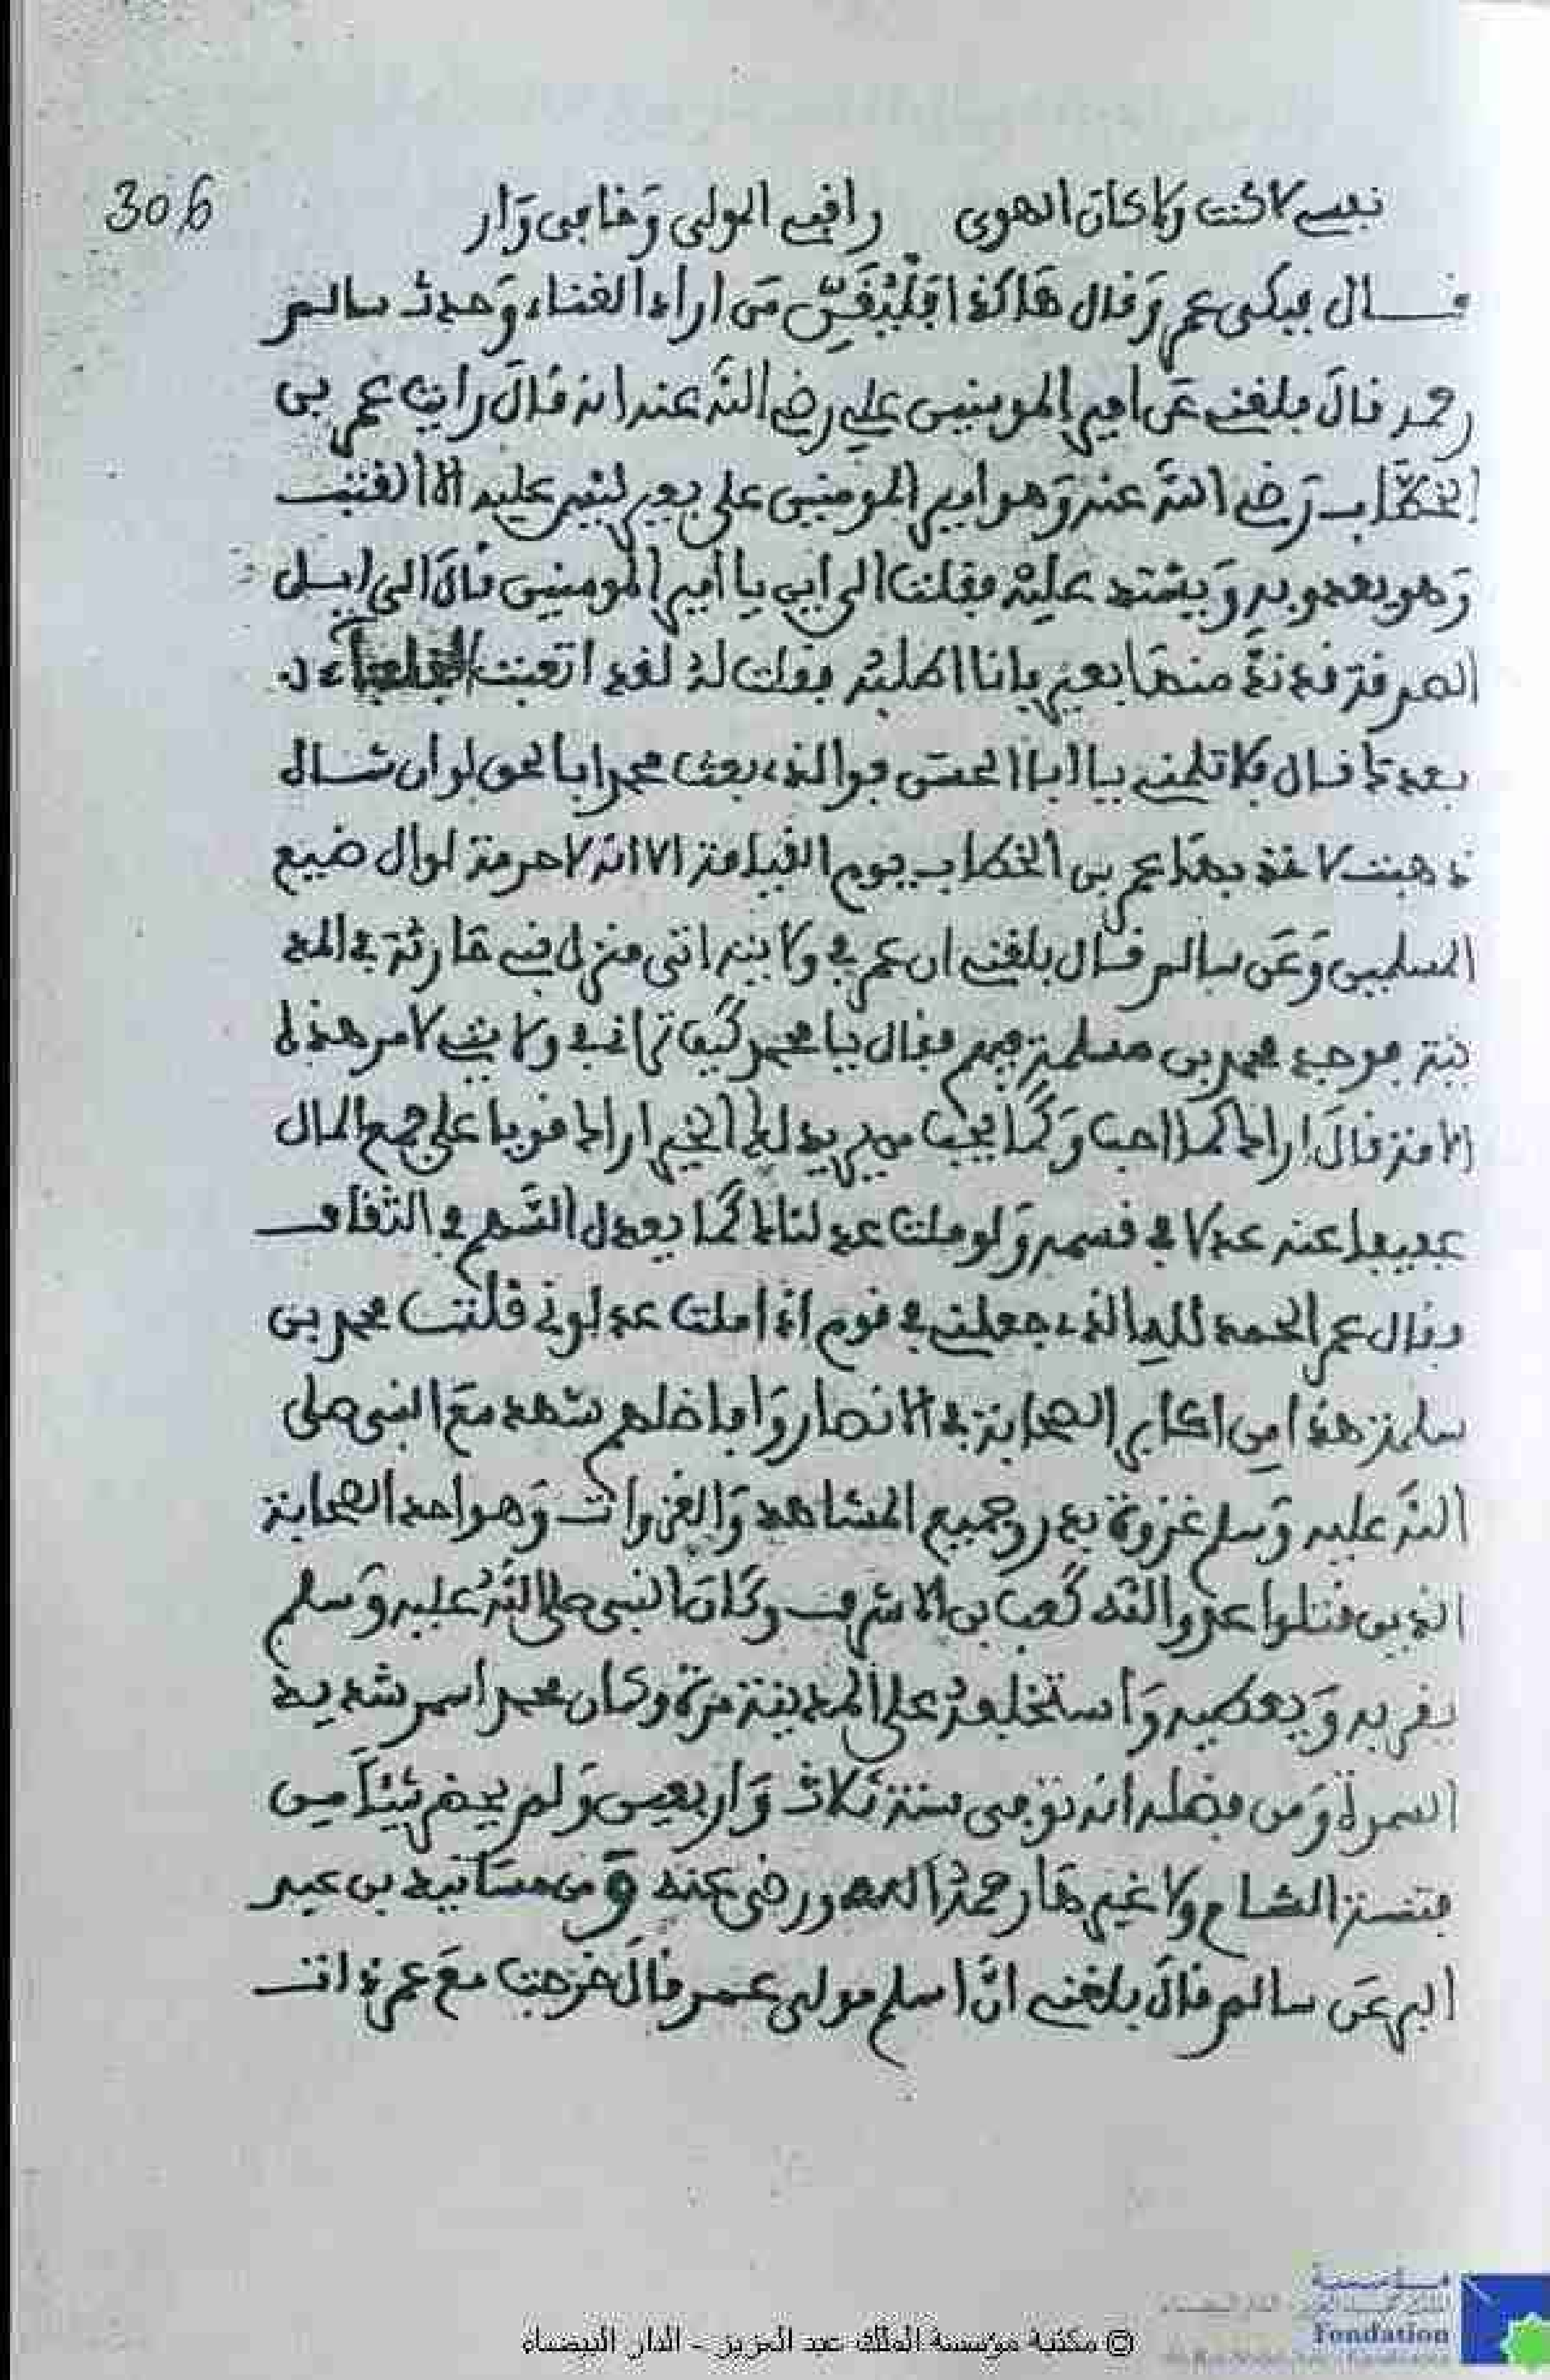 306
نفسي لا كنت ولا كان الهوى راقبي المولى وخافي وار
قال فبكى عمر وقال هاكذا فليغن من اراد الغناء وحدث سالم
رحمه قال بلغني عن امير المومنين علي رضي الله عنه انه قال رايت عمر بن
الخطاب رضي الله عنه وهو امير المومنين على بعير ليس عليه الا القتب
وهو يعدو به ويشتد عليه فقلت الى اين يا امير المومنين قال الى ابل
الصدقة قد ند منها بعير فانا اطلبه فقلت له لقد اتعبت الخلفاء
بعدك قال لا تلمني يا ابا الحسن فوالذي بعث محمدا بالحق لو ان شال
ذهبت لاخذ بها عمر بن الخطاب يوم القيامة الا انه لا حرمة لوال ضيع
المسلمين وعن سالم قال بلغني ان عمر في ولايته اتى منزل بني حارثة في المد
ينة فوجد محمد بن مسلمة فيهم فقال يا محمد كيف تراني في ولايتي لامر هذه
الامة قال اراك كما احب وكما يحب من يريد لك الخير اراك قويا على جمع المال
عفيفا عنه عدلا في قسمه ولو ملت عدلناك كما يعدل السهم في الثقاف
وقال عمر الحمد لله الذي جعلني في قوم اذا ملت عدلوني قلت محمد بن
سلمة هذا من اكابر الصحابة في الانصار وافاضلهم شهد مع النبي صلى
الله عليه وسلم غزوة بدر وجميع المشاهد والغزوات وهو احد الصحابة
الذين قتلوا عدو الله كعب بن الاشرف وكان النبي صلى الله عليه وسلم
يقربه ويعظمه واستخلفه على المدينة مرة وكان محمد اسمر شديد
السمرة ومن فضله انه توفي سنة ثلاث واربعين ولم يحضر شيئا من
فتنة الشام ولا غيرها رحمه الله ورضي عنه ومن مسانيد بن عبد
البر عن سالم قال بلغني ان اسلم مولى عمر قال خرجت مع عمر ذات
© مكتبة مؤسسة الملك عبد العزيز - الدار البيضاء
Fondation